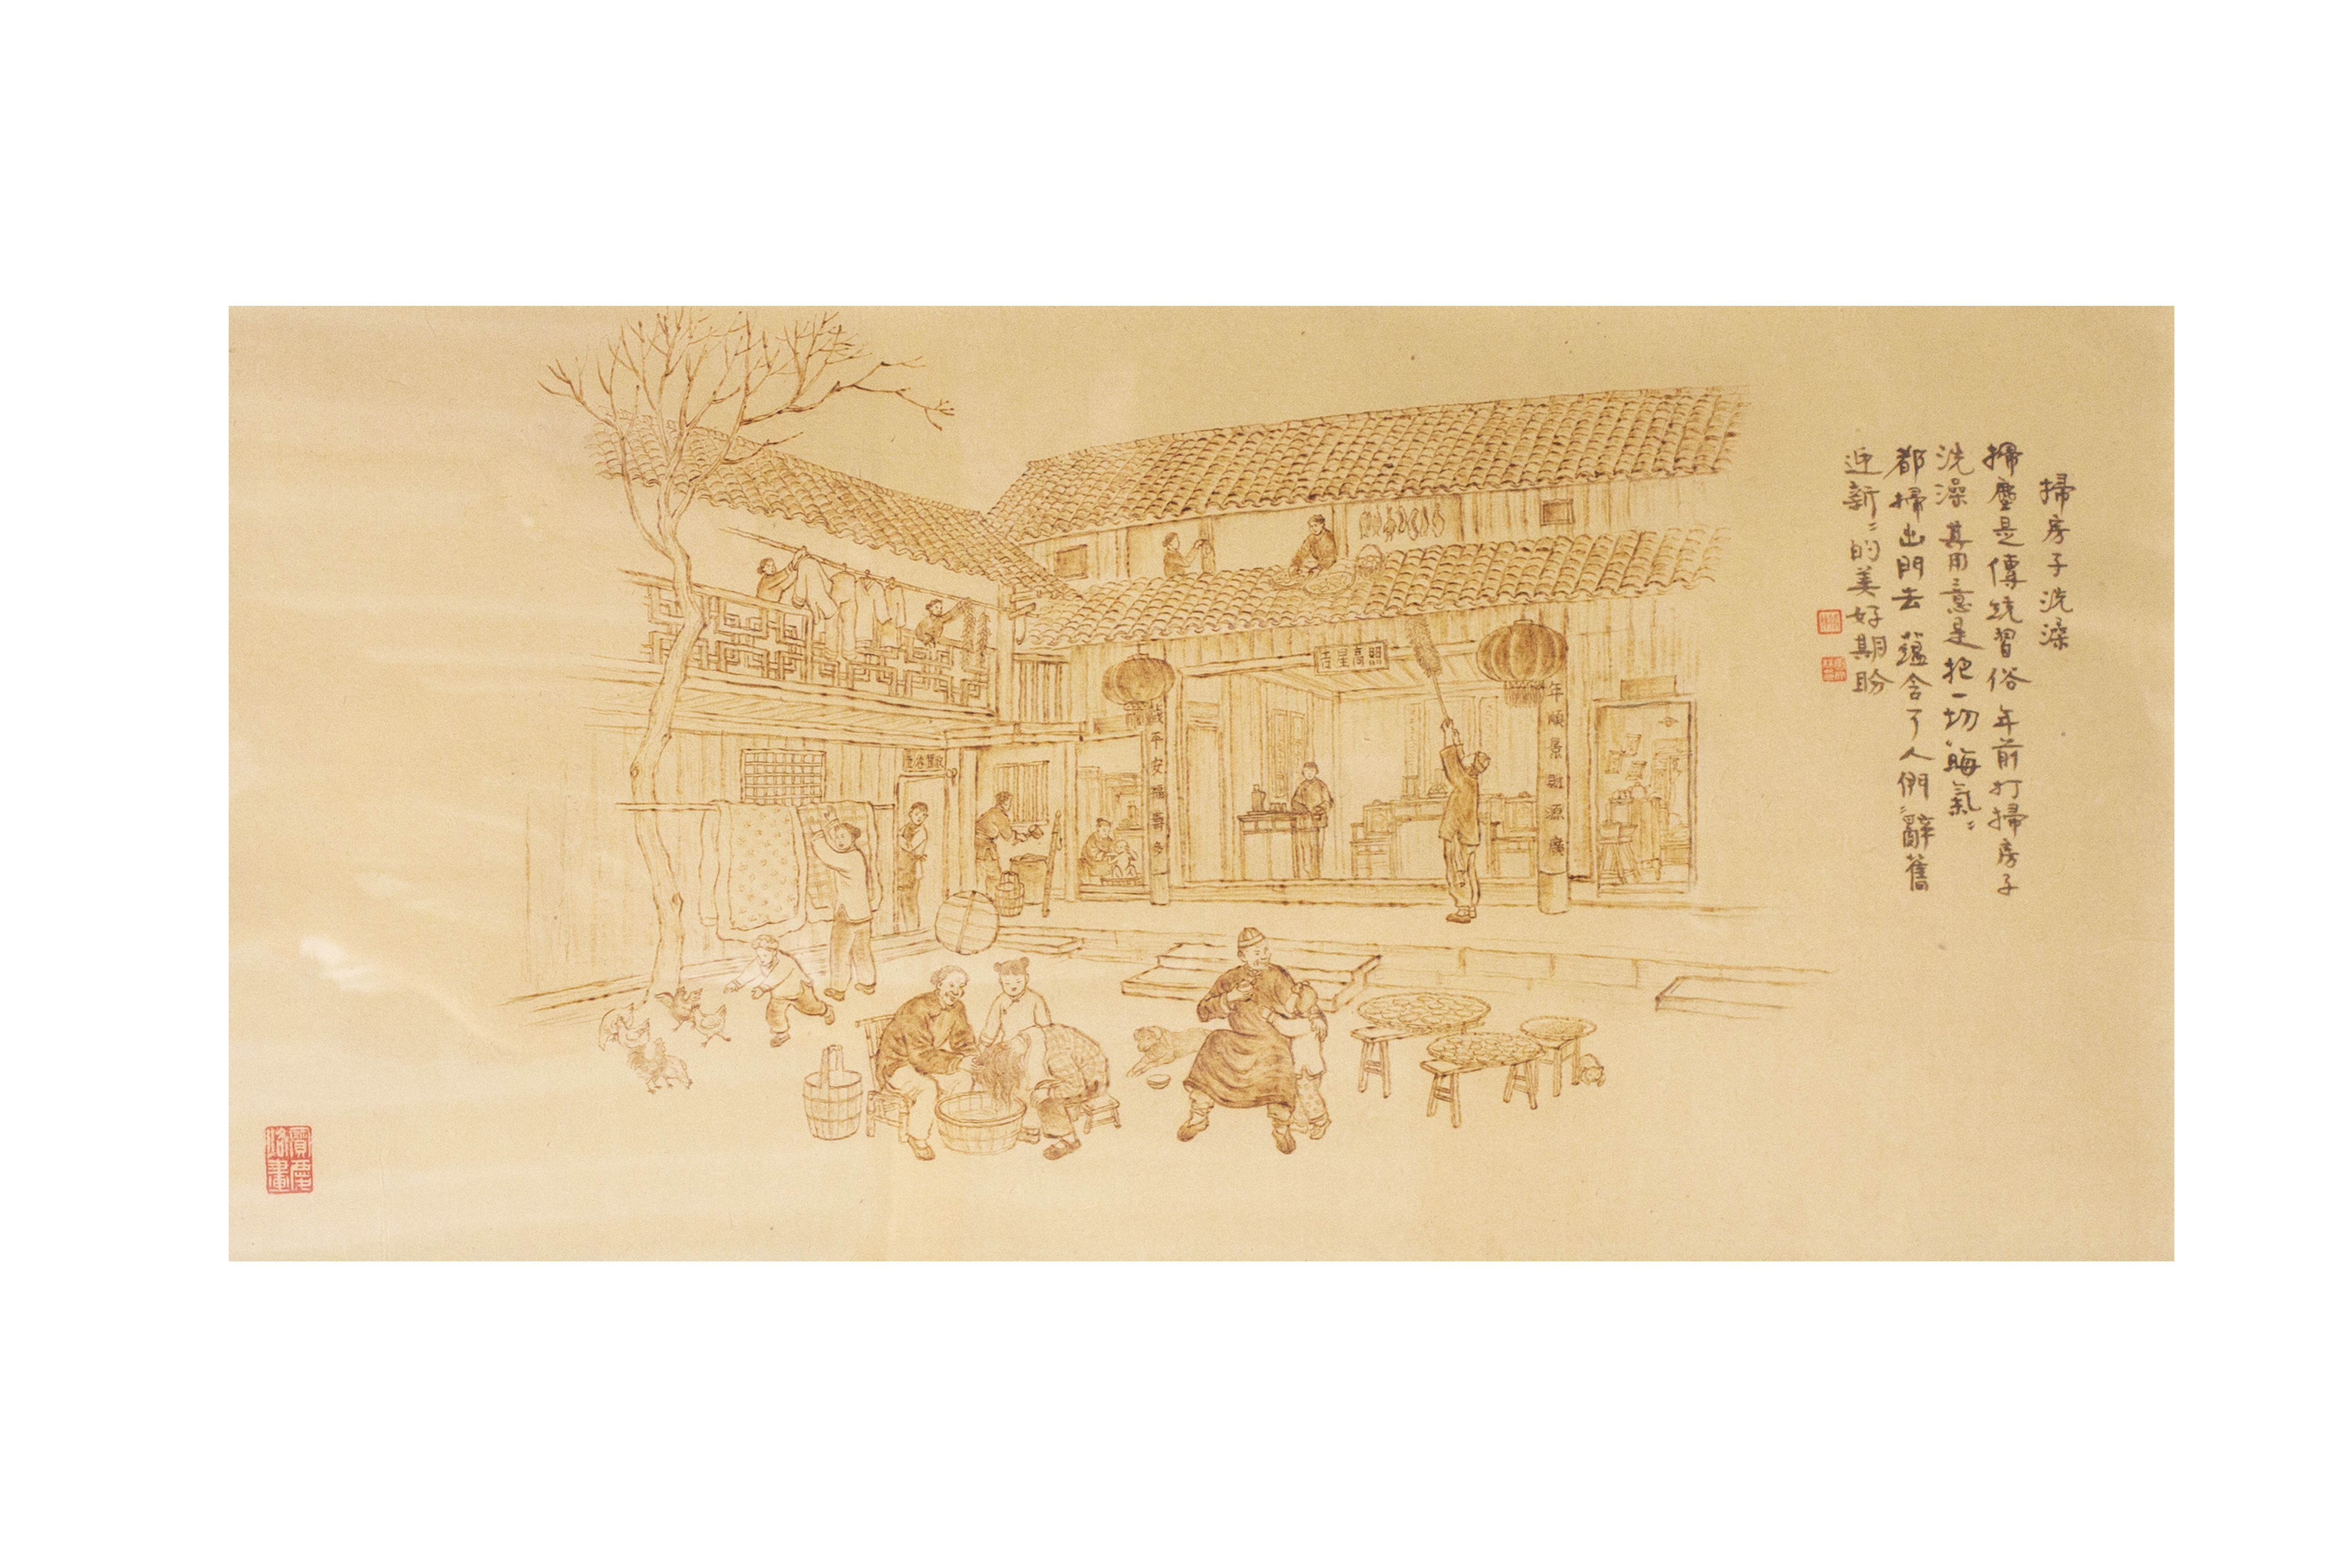 掃房子洗澡
掃塵是傳統習俗年前打掃房子
洗澡其用意是把一切〝晦氣〞
都掃出門去蘊含了人們〝辭舊
迎新〞的美好期盼
吉星高照
年順景財源廣
歲平安福壽多
寶慶烙畫